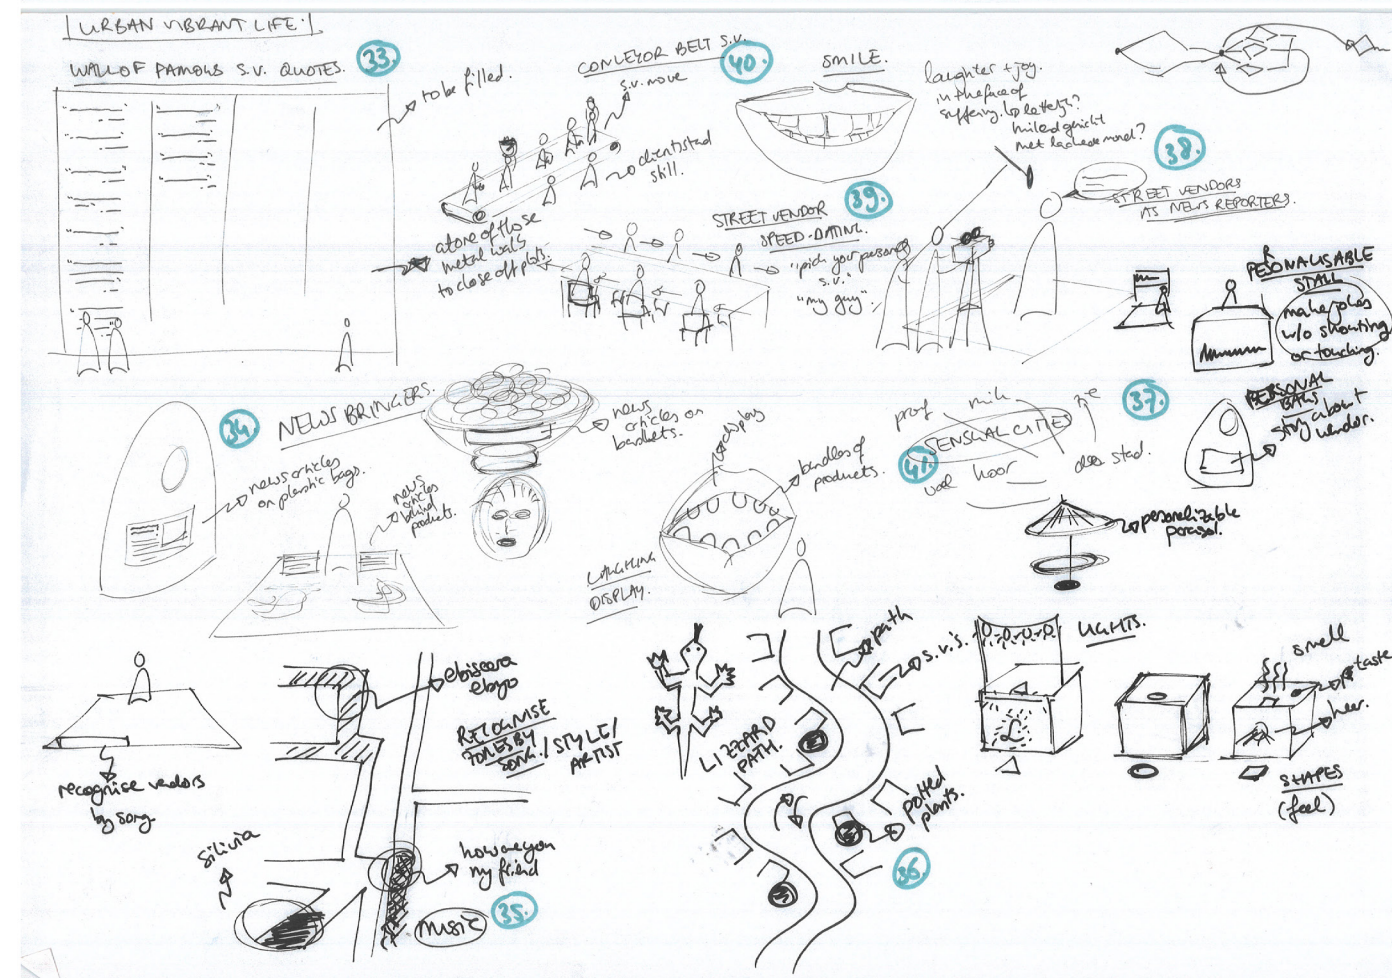 URBAN VIBRANT LIFE.
WALL OF FAMOUS S.V. QUOTES.
33.
to be filled.
CONVEYOR BELT S.V.
40.
s.v. move
client stad
still.
a tore of those
metal walls
to close off plots.
SMILE.
laughter + joy
in the face of
suffering.
met lachende mond?
38.
STREET VENDORS
AS NEWS REPORTERS.
39.
STREET VENDOR
SPEED-DATING.
"pick your personal
s.v."
"my guy".
PESONALISABLE
STALL
make jokes
w/o shouting
or touching.
34.
NEWS BRINGERS.
news articles
on plastic bags.
news
articles
behind
products.
news
articles on
baskets.
display
bundles of
products.
LAUGHING
DISPLAY.
proef
SENSUAL CITIES
41.
voel
hoor
stad.
37.
PERSONAL
BAGS
story about
vendor.
pesonalizable
parasol.
recognise vendors
by song
ebiseera
ebyo
RECOGNISE
ZONES BY
SONG/STYLE/
ARTIST
silivia
how are you
my friend
music
35.
LIZZARD
PATH.
path
s.v.'s.
potted
plants.
36.
LIGHTS.
smell
taste
hear.
SHAPES
(feel)